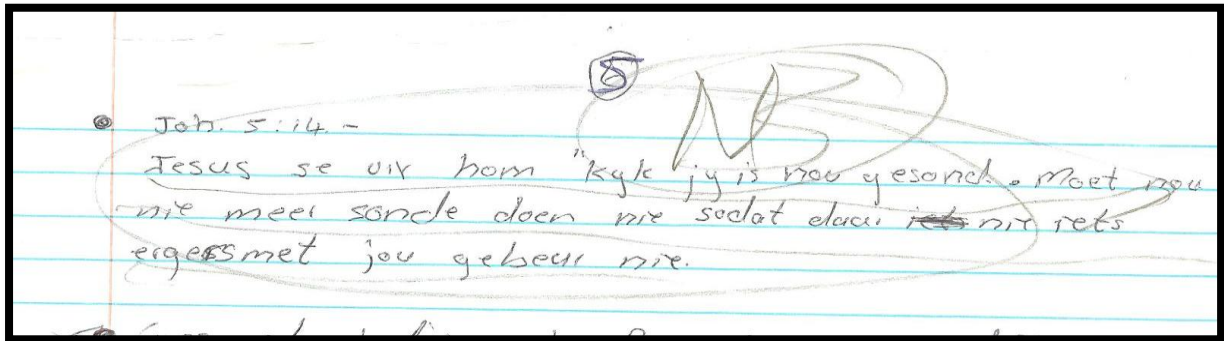 5
NB
Joh. 5:14 -
Jesus se vir hom "kyk jy is nou gesond. Moet nou
nie meer sonde doen nie sodat daar nie iets
ergers met jou gebeur nie.